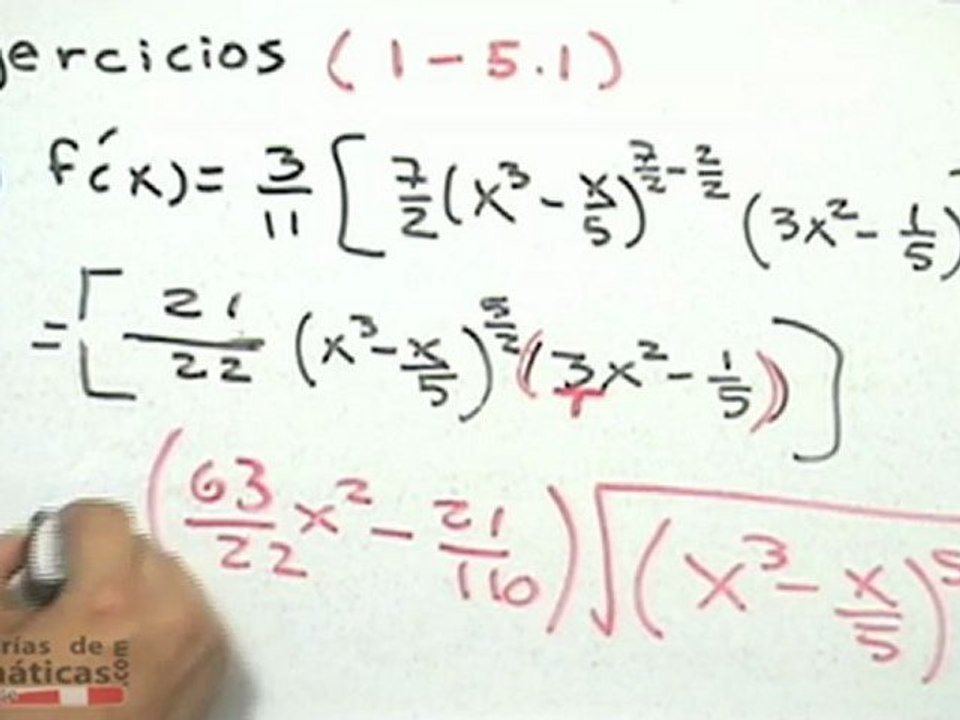 jercicios (1-5.1)
f'(x) = 3/11 [ 7/2 (x³ - x/5)^(7/2 - 2/2) (3x² - 1/5)
= [ 21/22 (x³ - x/5)^(5/2) (3x² - 1/5) ]
(63/22 x² - 21/110) √(x³ - x/5)⁵
rías de
áticas